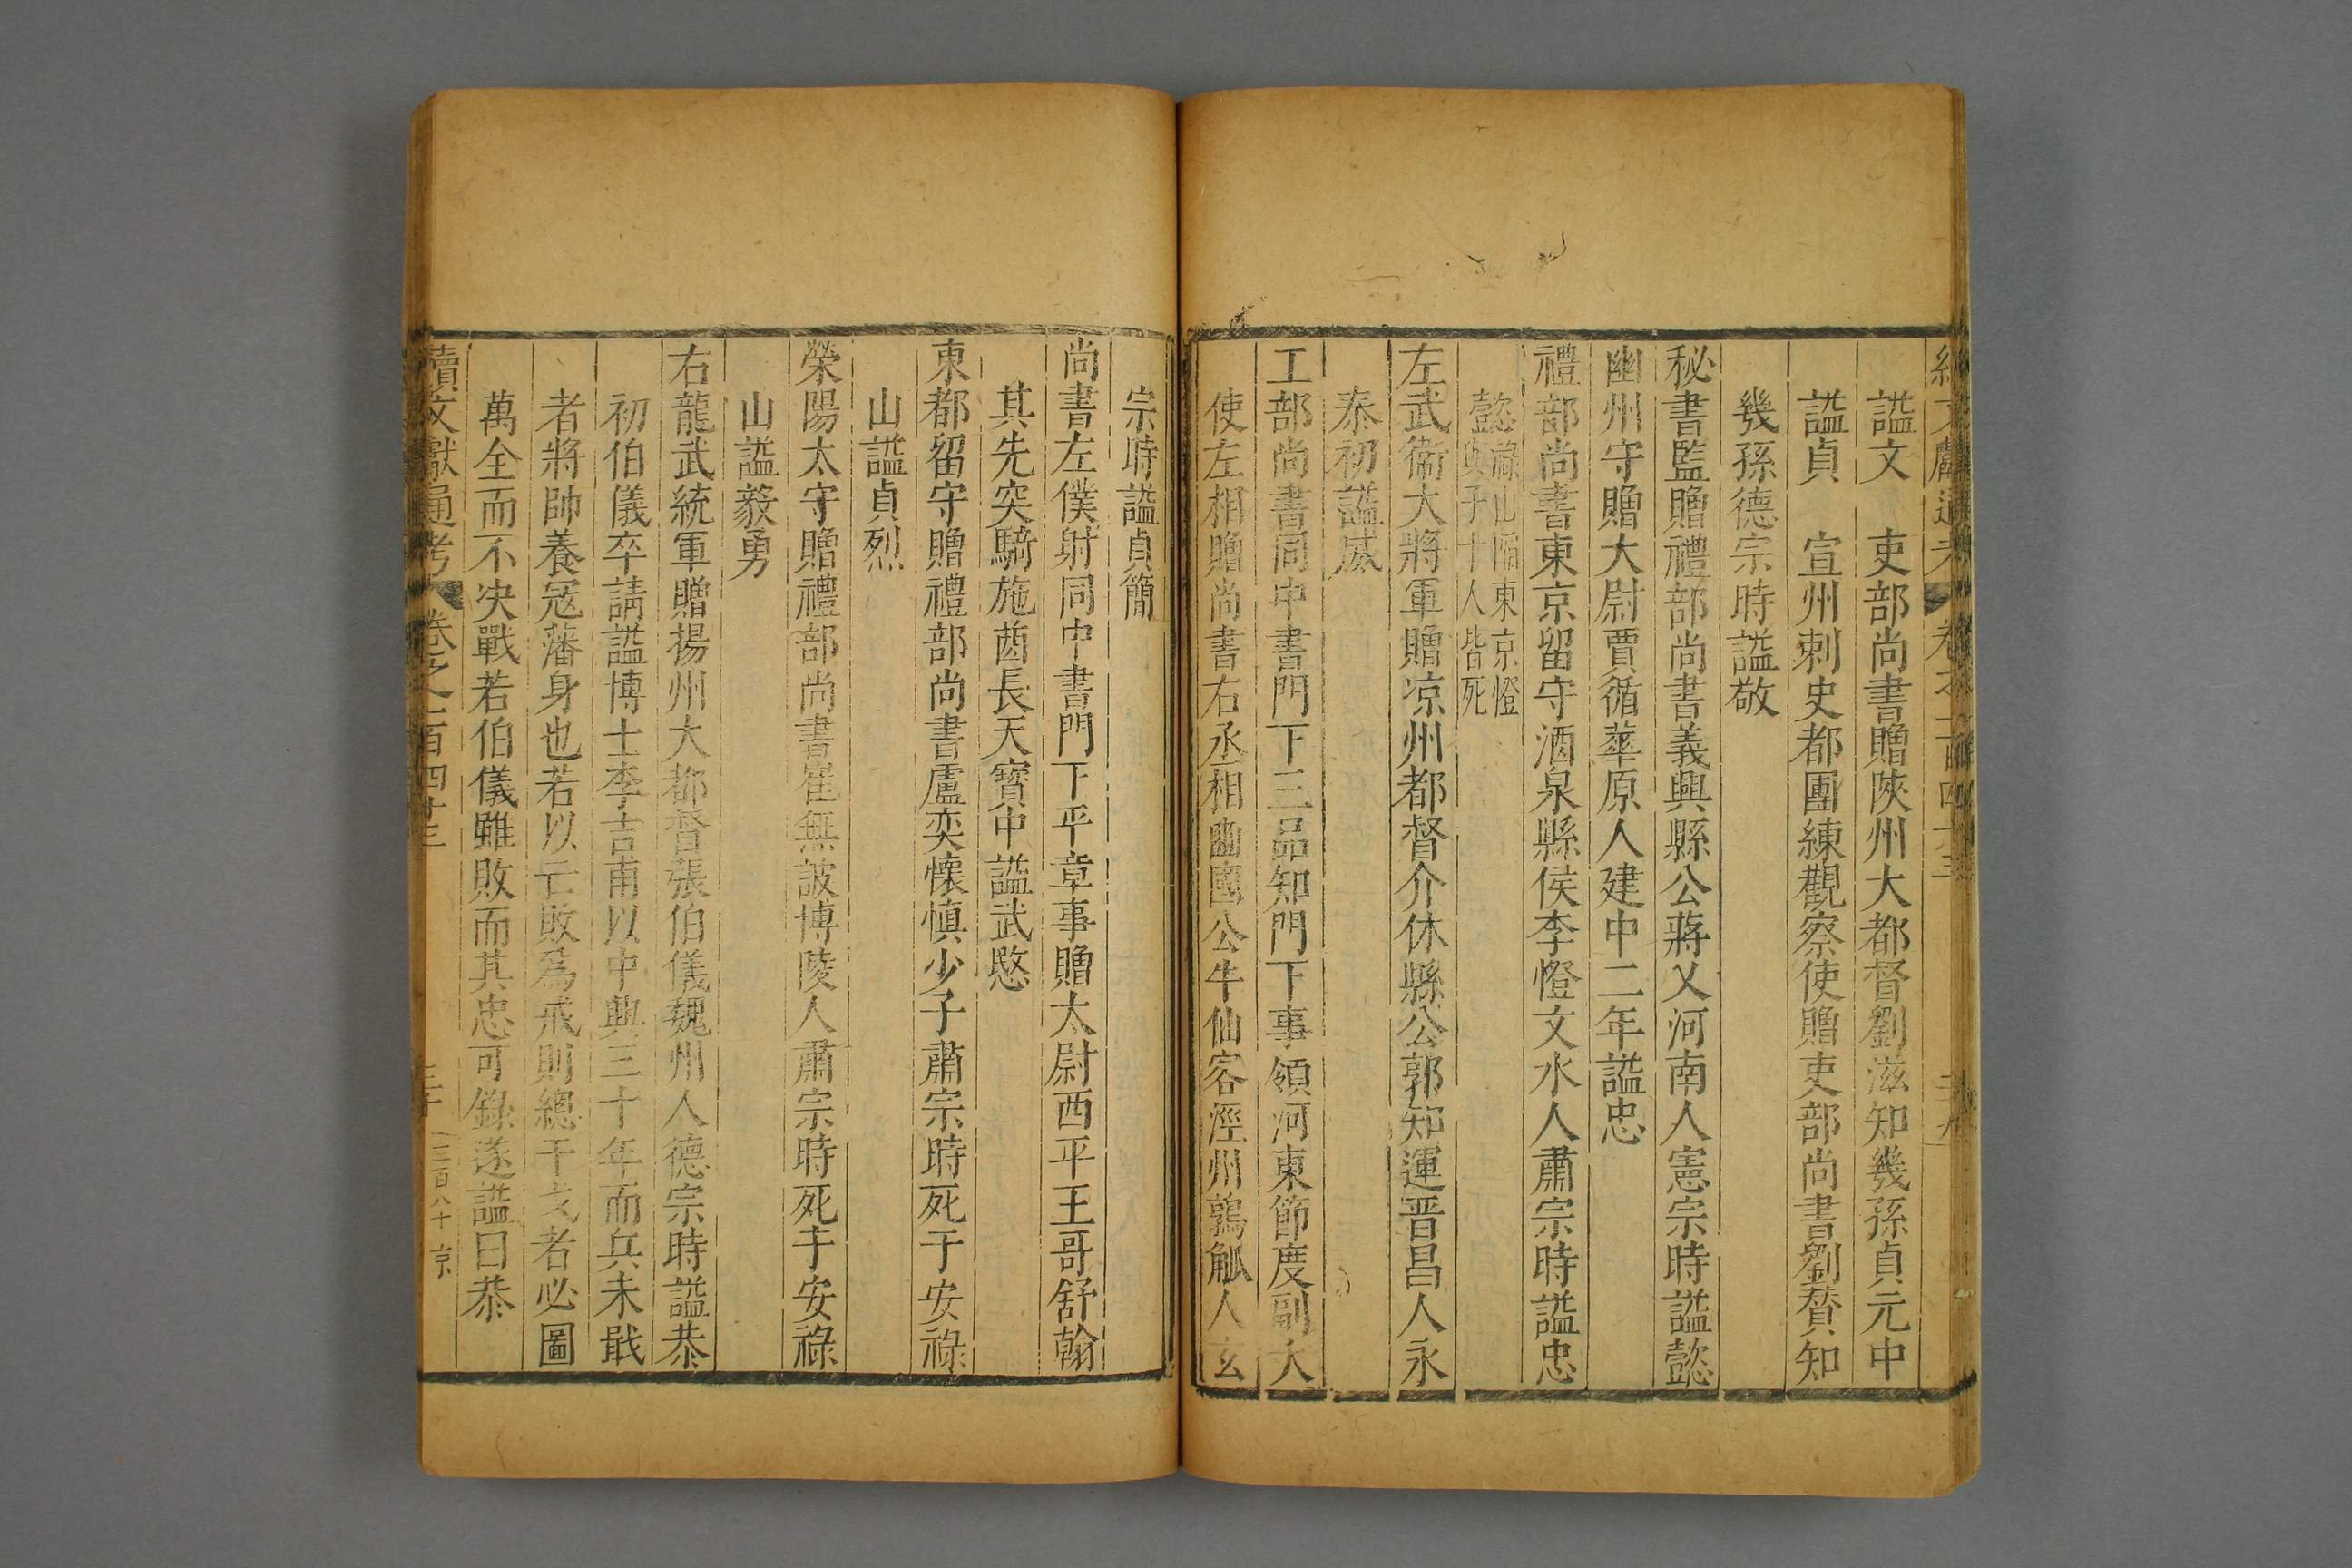 續文獻通考 卷之一百四十三
謚文 吏部尚書贈陝州大都督劉滋知幾孫貞元中
謚貞 宣州刺史都團練觀察使贈吏部尚書劉贊知
幾孫德宗時謚敬
秘書監贈禮部尚書義興縣公蔣乂河南人憲宗時謚懿
幽州守贈大尉賈循華原人建中二年謚忠
禮部尚書東京留守酒泉縣侯李憕文水人肅宗時謚忠
懿祿山陷東京憕
與子十人皆死
左武衞大將軍贈凉州都督介休縣公郭知運晋昌人永
泰初謚威
工部尚書同中書門下三品知門下事領河東節度副大
使左相贈尚書右丞相豳國公牛仙客涇州鶉觚人玄
宗時謚貞簡
尚書左僕射同中書門下平章事贈太尉西平王哥舒翰
其先突騎施酋長天寳中謚武愍
東都留守贈禮部尚書盧奕懷慎少子肅宗時死于安祿
山謚貞烈
榮陽太守贈禮部尚書崔無詖博陵人肅宗時死于安祿
山謚毅勇
右龍武統軍贈揚州大都督張伯儀魏州人德宗時謚恭
初伯儀卒請謚博士李吉甫以中興三十年而兵未戢
者將帥養冦藩身也若以亡敗爲戒則總干戈者必圖
萬全而不决戰若伯儀雖敗而其忠可錄遂謚曰恭
續文獻通考 卷之一百四十三 三十 三百八十 京